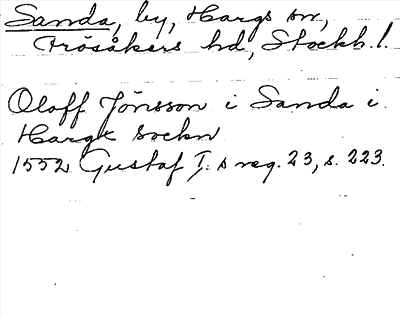 Sanda, by, Hargs sn,
Frösåkers hd, Stockh. l.
Oloff Jönsson i Sanda i
Hargx sockn
1552 Gustaf I:s reg. 23, s. 223.